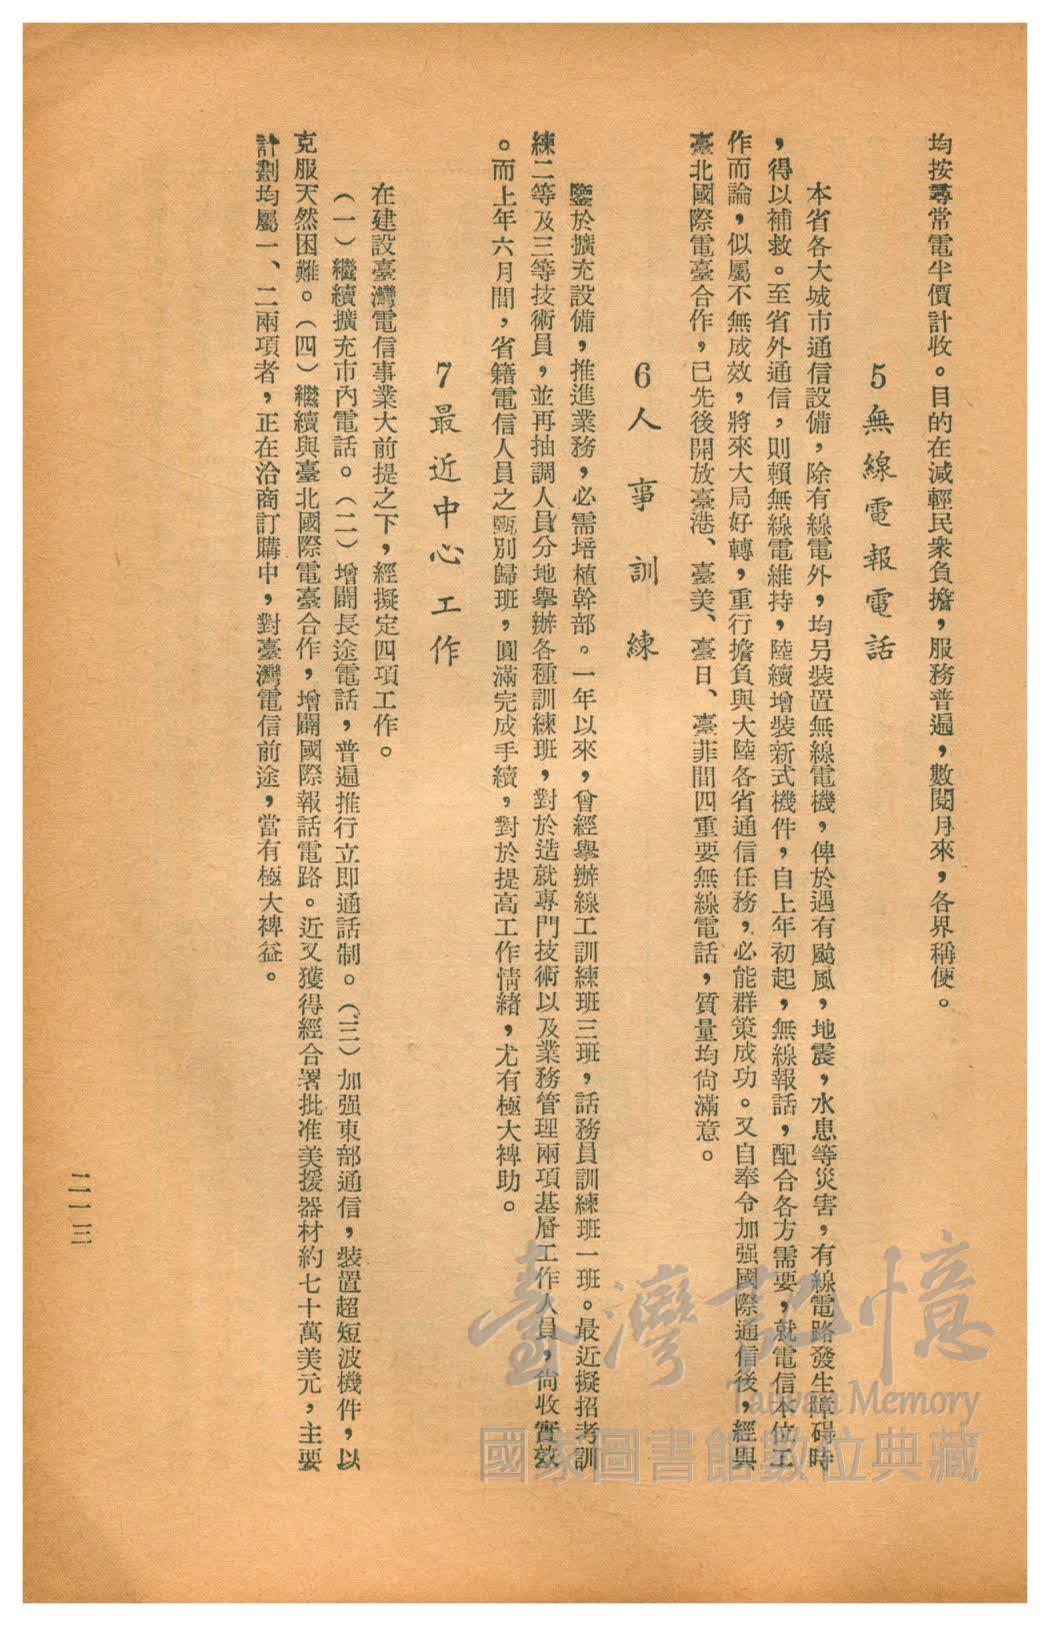 均按尋常電半價計收。目的在減輕民衆負擔，服務普遍，數閱月來，各界稱便。
5 無線電報電話
本省各大城市通信設備，除有線電外，均另裝置無線電機，俾於遇有颱風，地震，水患等災害，有線電路發生障碍時
，得以補救。至省外通信，則賴無線電維持，陸續增裝新式機件，自上年初起，無線報話，配合各方需要，就電信本位工
作而論，似屬不無成效，將來大局好轉，重行擔負與大陸各省通信任務，必能群策成功。又自奉令加强國際通信後，經與
臺北國際電臺合作，已先後開放臺港、臺美、臺日、臺菲間四重要無線電話，質量均尙滿意。
6 人事訓練
鑒於擴充設備，推進業務，必需培植幹部。一年以來，曾經舉辦線工訓練班三班，話務員訓練班一班。最近擬招考訓
練二等及三等技術員，並再抽調人員分地舉辦各種訓練班，對於造就專門技術以及業務管理兩項基層工作人員，尙收實效
。而上年六月間，省籍電信人員之甄別歸班，圓滿完成手續，對於提高工作情緒，尤有極大裨助。
7 最近中心工作
在建設臺灣電信事業大前提之下，經擬定四項工作。
（一）繼續擴充市內電話。（二）增闢長途電話，普遍推行立即通話制。（三）加强東部通信，裝置超短波機件，以
克服天然困難。（四）繼續與臺北國際電臺合作，增闢國際報話電路。近又獲得經合署批准美援器材約七十萬美元，主要
計劃均屬一、二兩項者，正在洽商訂購中，對臺灣電信前途，當有極大裨益。
二一三
臺灣記憶
Taiwan Memory
國家圖書館數位典藏